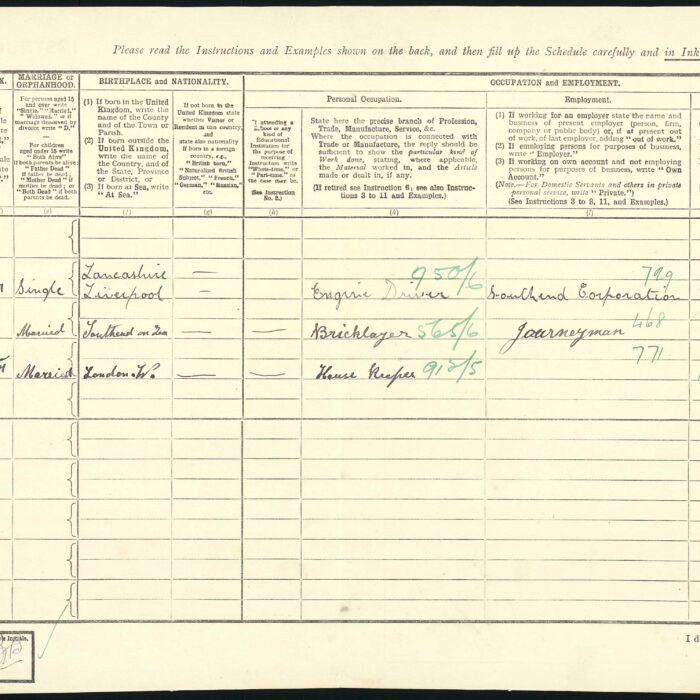 Please read the Instructions and Examples shown on the back, and then fill up the Schedule carefully and in Ink
X.
MARRIAGE or
ORPHANHOOD.
BIRTHPLACE and NATIONALITY.
OCCUPATION and EMPLOYMENT.
For persons aged 15
and over write
"Single," "Married,"
"Widowed," or if
marriage dissolved by
divorce write "D."
For children
aged under 15 write
"Both Alive"
if both parents be alive;
"Father Dead"
if father be dead;
"Mother Dead" if
mother be dead; or
"Both Dead" if both
parents be dead.
(1) If born in the United
Kingdom, write the
name of the County
and of the Town or
Parish.
(2) If born outside the
United Kingdom,
write the name of
the Country, and of
the State, Province
or District, or
(3) If born at Sea, write
"At Sea."
If not born in the
United Kingdom state
whether Visitor or
Resident in this country,
and
state also nationality
if born in a foreign
country, e.g.,
"Naturalised British
Subject," "French,"
"German," "Russian,"
etc.
If attending a
School or any
kind of
Educational
Institution
for the purpose of
receiving
Instruction write
"Whole-time," or
"Part-time," as
the case may be.
(See Instruction
No. 2.)
Personal Occupation.
State here the precise branch of Profession,
Trade, Manufacture, Service, &c.
Where the occupation is connected with
Trade or Manufacture, the reply should be
sufficient to show the particular kind of
Work done, stating, where applicable,
the Material worked in, and the Article
made or dealt in, if any.
(If retired see Instruction 6, see also Instruc-
tions 3 to 11 and Examples.)
Employment.
(1) If working for an employer state the name and
business of present employer (person, firm,
company or public body) or, if at present out
of work, of last employer, adding "out of work."
(2) If employing persons for purposes of business,
write "Employer."
(3) If working on own account and not employing
persons for purposes of business, write "Own
Account."
(Note.—For Domestic Servants and others in private
personal service, write "Private.")
(See Instructions 3 to 8, 11, and Examples.)
(e) (f) (g) (h) (k) (l)
Lancashire — 950/6 799
Single Liverpool — Engine Driver Southend Corporation
Married Southend on Sea — — Bricklayer 565/6 Journeyman 468
771
Married London. W. — — House Keeper 913/5
Initials.
I d